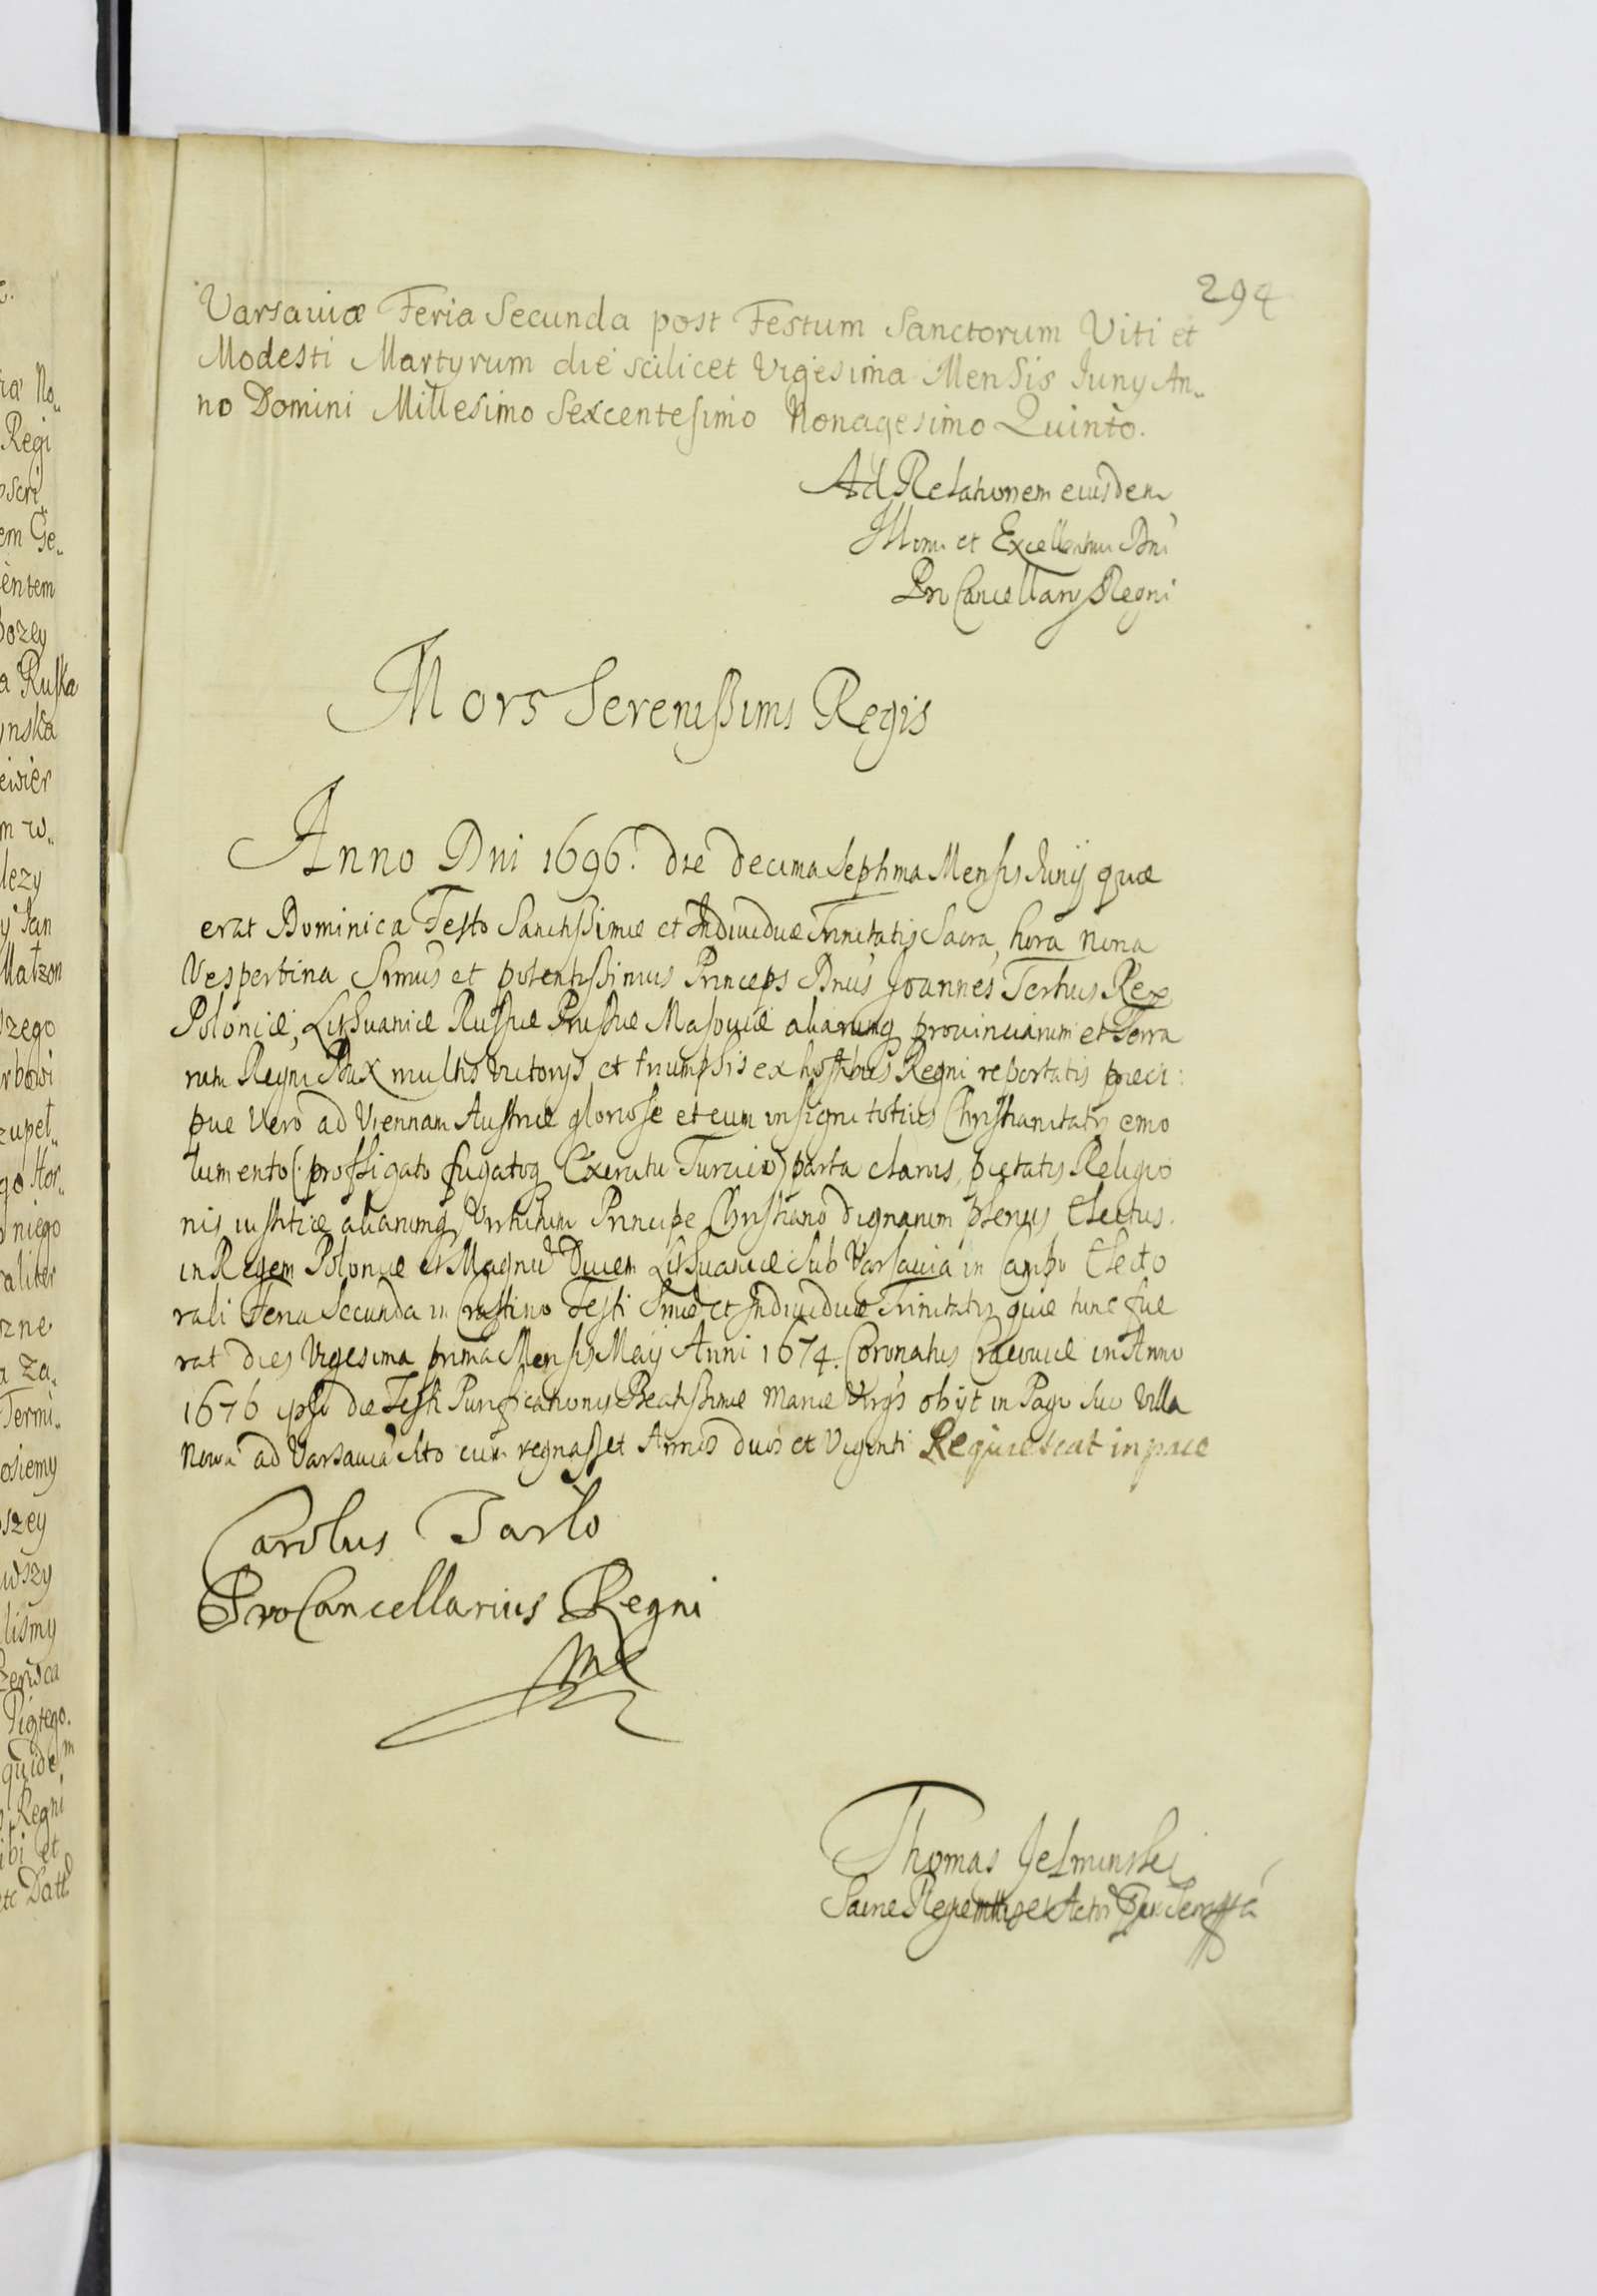 294
Varsaviæ Feria Secunda post Festum Sanctorum Viti et
Modesti Martyrum die scilicet Vigesima Mensis Iuny An„
no Domini Millesimo Sexcentesimo Nonagesimo Quinto.
Ad Relationem eiusdem
Illmi et Excellentmi Dni
Pro Cancellarij Regni
Mors Serenissimi Regis
Anno Dni 1696. die decima septima Mensis Iunij quæ
erat Dominica Festo Sanctissimæ et Individuæ Trinitatis Sacra, hora nona
Vespertina Srmus et potentissimus Princeps Dnus Joannes Tertius Rex
Poloniæ, Lithuaniæ Russiæ Prussiæ Masoviæ aliarumq provinciarum et Terra
rum Regni Dux multis victorijs et triumphis ex hostibus Regni reportatis præci:
pue vero ad Viennam Austriæ gloriose et cum insigni totius Christianitatis emo
lumento (profligato fugatoq Exercitu Turcico) parta clarus, pietatis Religio
nis iustitiæ aliarumq Virtutum Principe Christiano dignarum plenus Electus
in Regem Poloniæ et Magnu Ducem Lithuaniæ sub Varsavia in Campo Electo
rali Feria Secunda in Crastino Festi Smæ et Individuæ Trinitatis quæ tunc fue
rat dies Vigesima prima Mensis Maij Anni 1674. Coronatus Cracoviæ in Anno
1676 ipso die Festi Purificationis Beatissimæ Mariæ Virgs obijt in Pago suo Villa
Nova ad Varsavia sito cum regnasset Annis duos et Viginti Requiescat in pace
Carolus Tarlo
ProCancellarius Regni
Thomas